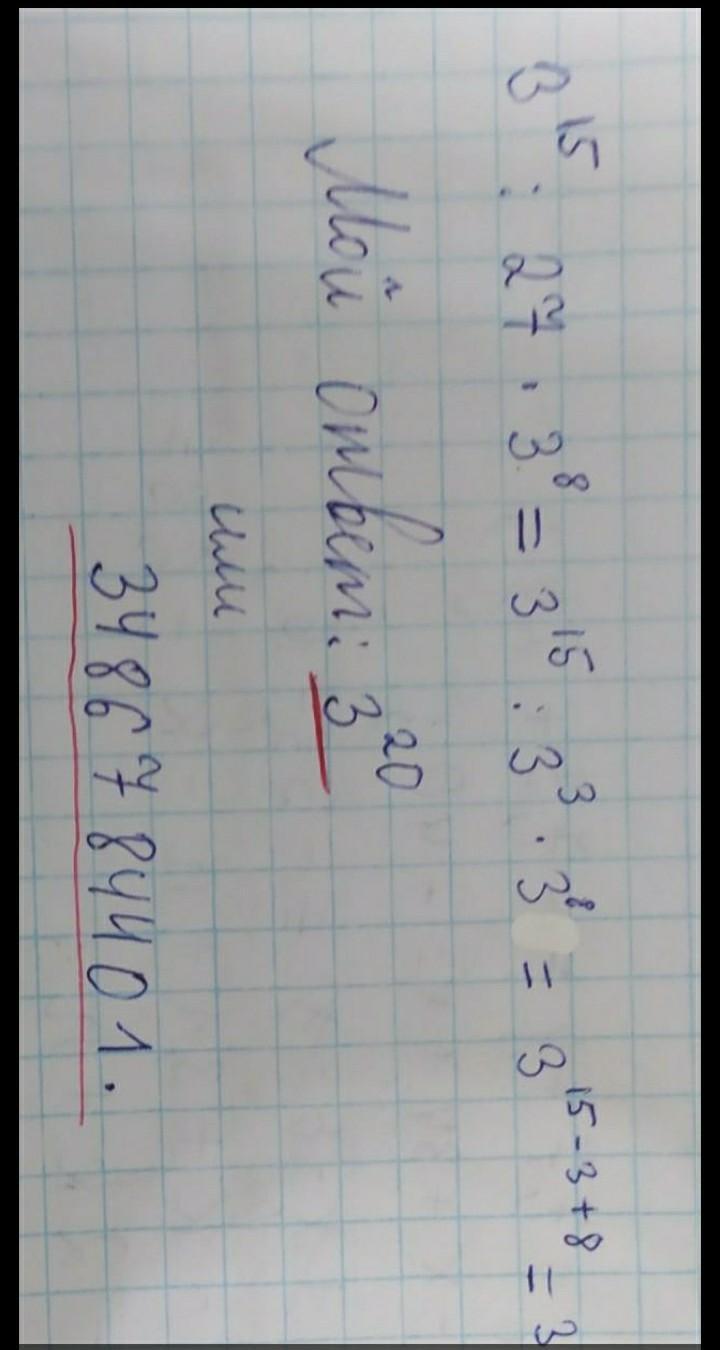 3¹⁵ : 27 · 3⁸ = 3¹⁵ : 3³ · 3⁸ = 3¹⁵⁻³⁺⁸ = 3
Мой ответ: 3²⁰
или
3486784401.